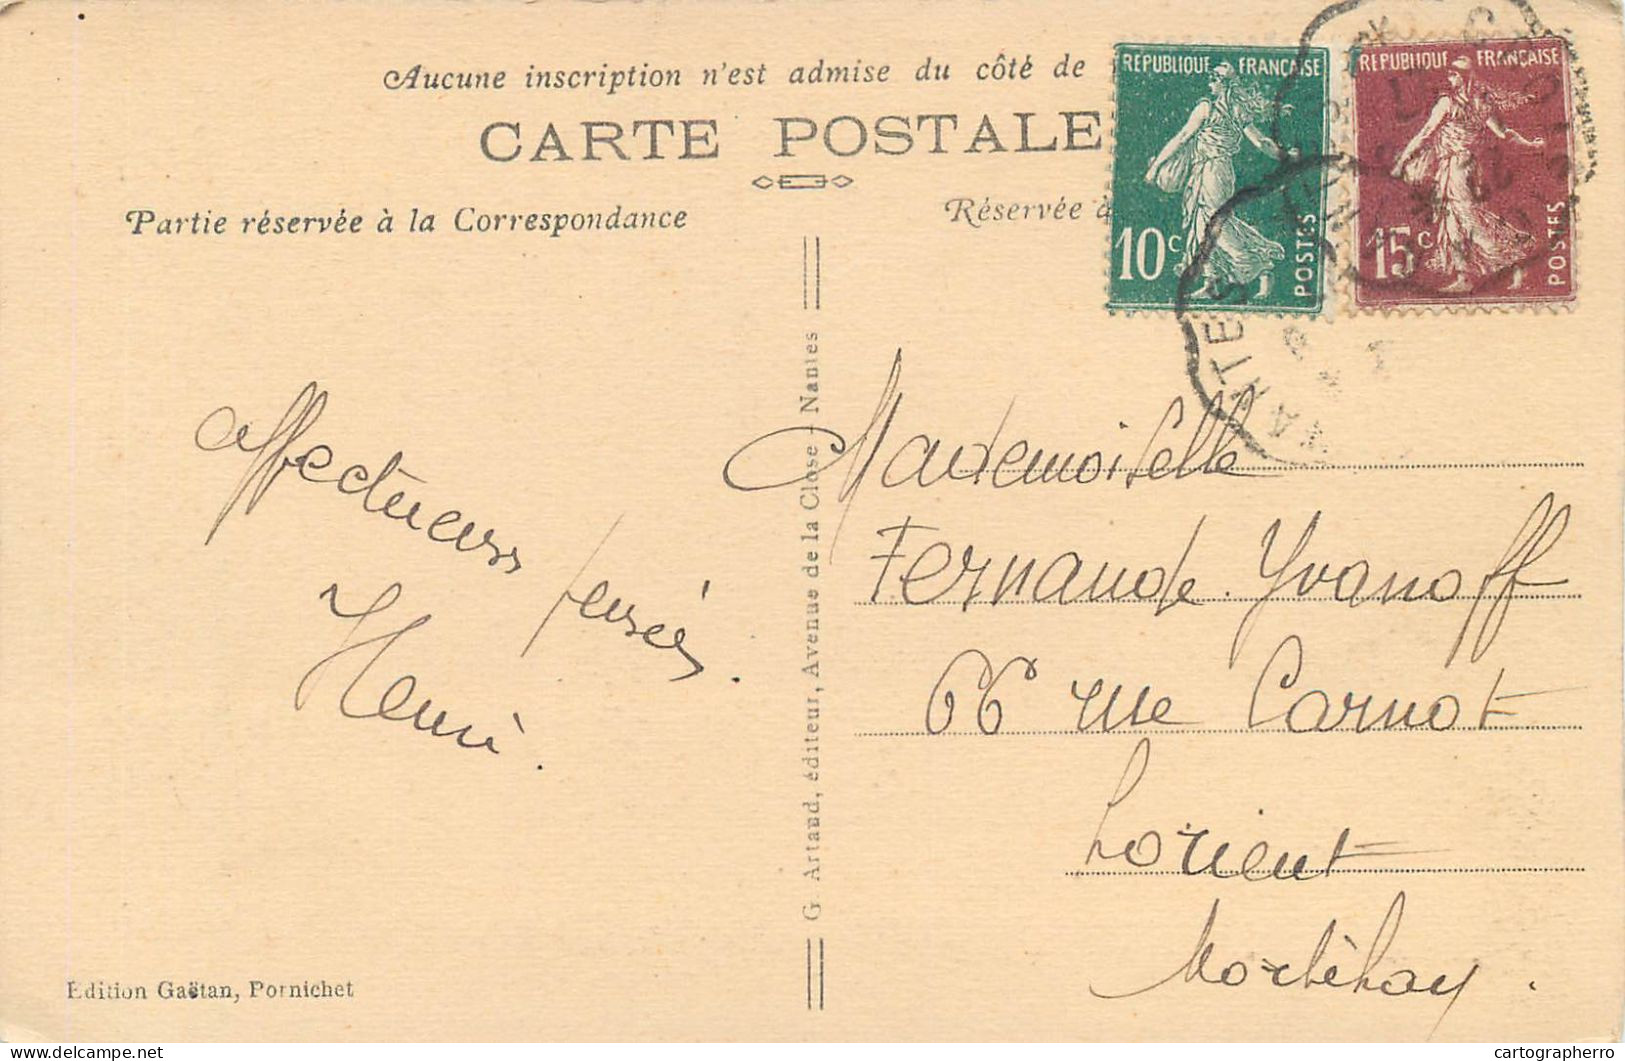 Aucune inscription n'est admise du côté de
CARTE POSTALE
Partie réservée à la Correspondance
Réservée à
RÉPUBLIQUE FRANÇAISE
10c
POSTES
RÉPUBLIQUE FRANÇAISE
15c
POSTES
NANTES
affectueuses pensées.
Henri.
G. Artaud, éditeur, Avenue de la Close - Nantes
Mademoiselle
Fernande Yvanoff
66 rue Carnot
Lorient
Morbihan.
Edition Gaëtan, Pornichet
delcampe.net
cartographerro